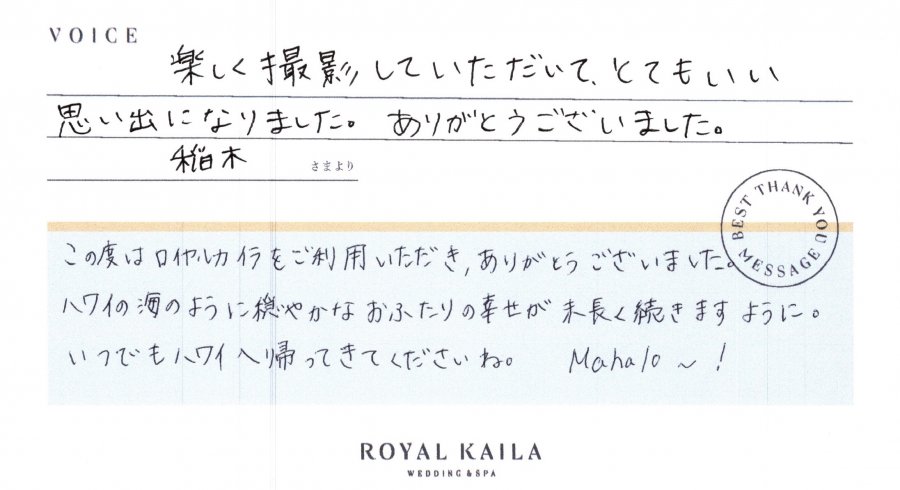 VOICE
楽しく撮影していただいて、とてもいい
思い出になりました。 ありがとうございました。
稲木 さまより
BEST THANK YOU MESSAGE
この度はロイヤルカイラをご利用いただき,ありがとうございました。
ハワイの海のように穏やかなおふたりの幸せが末長く続きますように。
いつでもハワイへ帰ってきてくださいね。 Mahalo ~ !
ROYAL KAILA
WEDDING & SPA